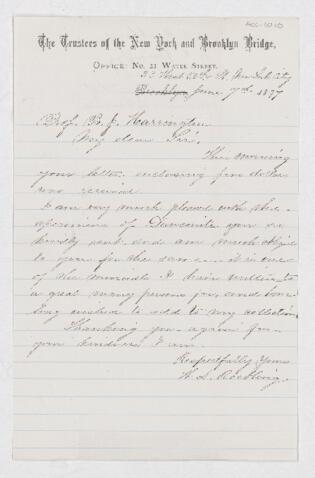 The Trustees of the New York and Brooklyn Bridge,
Office: No. 21 Water Street.
Brooklyn, June 7th 1877
Prof. B. J. Harrington
My dear Sir.
This morning
your letter enclosing five dollars
was received.
I am very much pleased with the
specimen of Dawsonite you so
kindly sent and am much obliged
to you for the same - it is one
of the minerals I have written to
a great many persons for, and have
long wished to add to my collection
Thanking you again for
your kindness I am
Respectfully Yours
W. A. Roebling